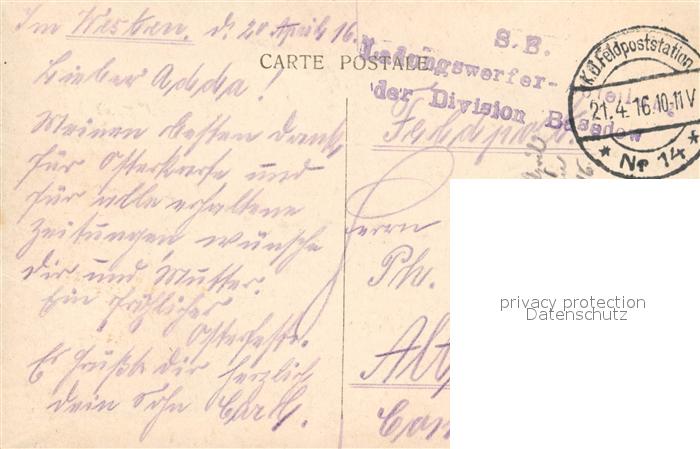 Im Westen, d. 20 April 16.
CARTE POSTALE
Lieber Adda!
Meinen besten Dank
für Osterkarte und
für alle erhaltene
Zeitungen, wünsche
dir und Mutter.
Ein fröhliches
Osterfest.
Es grüßt dir herzlich
dein Sohn Carl.
S.B.
Ladungswerfer-
der Division Basedow
K.D. Feldpoststation
21.4.16.10-11V
* Nr 14 *
Feldpost.
Herrn
Ph.
privacy protection
Datenschutz